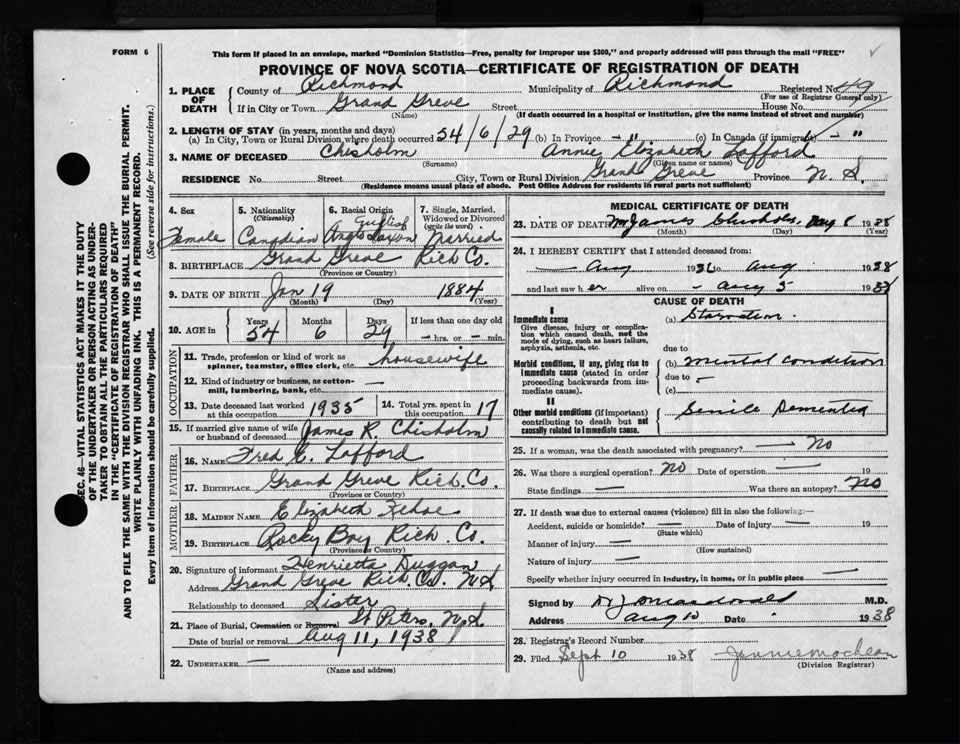 FORM 6
This form if placed in an envelope, marked "Dominion Statistics—Free, penalty for improper use $300," and properly addressed will pass through the mail "FREE"
PROVINCE OF NOVA SCOTIA—CERTIFICATE OF REGISTRATION OF DEATH
SEC. 46—VITAL STATISTICS ACT MAKES IT THE DUTY
OF THE UNDERTAKER OR PERSON ACTING AS UNDER-
TAKER TO OBTAIN ALL THE PARTICULARS REQUIRED
IN THE "CERTIFICATE OF REGISTRATION OF DEATH"
AND TO FILE THE SAME WITH THE DIVISION REGISTRAR WHO SHALL ISSUE THE BURIAL PERMIT.
WRITE PLAINLY WITH UNFADING INK. THIS IS A PERMANENT RECORD.
Every item of information should be carefully supplied. (See reverse side for instructions.)
1. PLACE OF DEATH County of Richmond Municipality of Richmond Registered No. 49
(For use of Registrar General only)
If in City or Town Grand Greve Street House No.
(Name) (If death occurred in a hospital or institution, give the name instead of street and number)
2. LENGTH OF STAY (in years, months and days)
(a) In City, Town or Rural Division where death occurred 54/6/29 (b) In Province — " (c) In Canada (if immigrant) — "
3. NAME OF DECEASED Chisholm Annie Elizabeth Lafford
(Surname) (Given name or names)
RESIDENCE No. Street City, Town or Rural Division Grand Greve Province N. S.
(Residence means usual place of abode. Post Office Address for residents in rural parts not sufficient)
4. Sex Female
5. Nationality (Citizenship) Canadian
6. Racial Origin English Anglo Saxon
7. Single, Married, Widowed or Divorced (write the word) Married
8. BIRTHPLACE Grand Greve Rich Co.
(Province or Country)
9. DATE OF BIRTH Jan 19 1884
(Month) (Day) (Year)
10. AGE in Years 54 Months 6 Days 29 If less than one day old
— hrs. or — min.
OCCUPATION
11. Trade, profession or kind of work as spinner, teamster, office clerk, etc. housewife
12. Kind of industry or business, as cotton-mill, lumbering, bank, etc. —
13. Date deceased last worked at this occupation 1935 14. Total yrs. spent in this occupation 17
15. If married give name of wife or husband of deceased James R. Chisholm
FATHER
16. NAME Fred E. Lafford
17. BIRTHPLACE Grand Greve Rich. Co.
(Province or Country)
MOTHER
18. MAIDEN NAME Elizabeth Kehoe
19. BIRTHPLACE Rocky Bay Rich. Co.
(Province or Country)
20. Signature of informant Henrietta Duggan
Address Grand Greve Rich. Co. N.S
Relationship to deceased Sister
21. Place of Burial, Cremation or Removal St Peters, N.S
Date of burial or removal Aug 11, 1938
22. UNDERTAKER —
(Name and address)
MEDICAL CERTIFICATE OF DEATH
23. DATE OF DEATH Mrs James Chisholm, Aug 8 1938
(Month) (Day) (Year)
24. I HEREBY CERTIFY that I attended deceased from:
— Aug 1936 to Aug 1938
and last saw her alive on - Aug 5 1938
CAUSE OF DEATH
I
Immediate cause
Give disease, injury or complication which caused death, not the mode of dying, such as heart failure, asphyxia, asthenia, etc.
(a) Starvation.
due to
Morbid conditions, if any, giving rise to immediate cause (stated in order proceeding backwards from immediate cause).
(b) Mental Condition
due to -
(c)
II
Other morbid conditions (if important) contributing to death but not causally related to immediate cause.
Senile Dementia
25. If a woman, was the death associated with pregnancy? — No
26. Was there a surgical operation? No Date of operation — 19
State findings — Was there an autopsy? No
27. If death was due to external causes (violence) fill in also the following:—
Accident, suicide or homicide? — Date of injury — 19
(State which)
Manner of injury —
(How sustained)
Nature of injury —
Specify whether injury occurred in industry, in home, or in public place —
Signed by M.D.
Address Aug 10 Date 1938
28. Registrar's Record Number
29. Filed Sept 10 1938 Jennie MacLean
(Division Registrar)